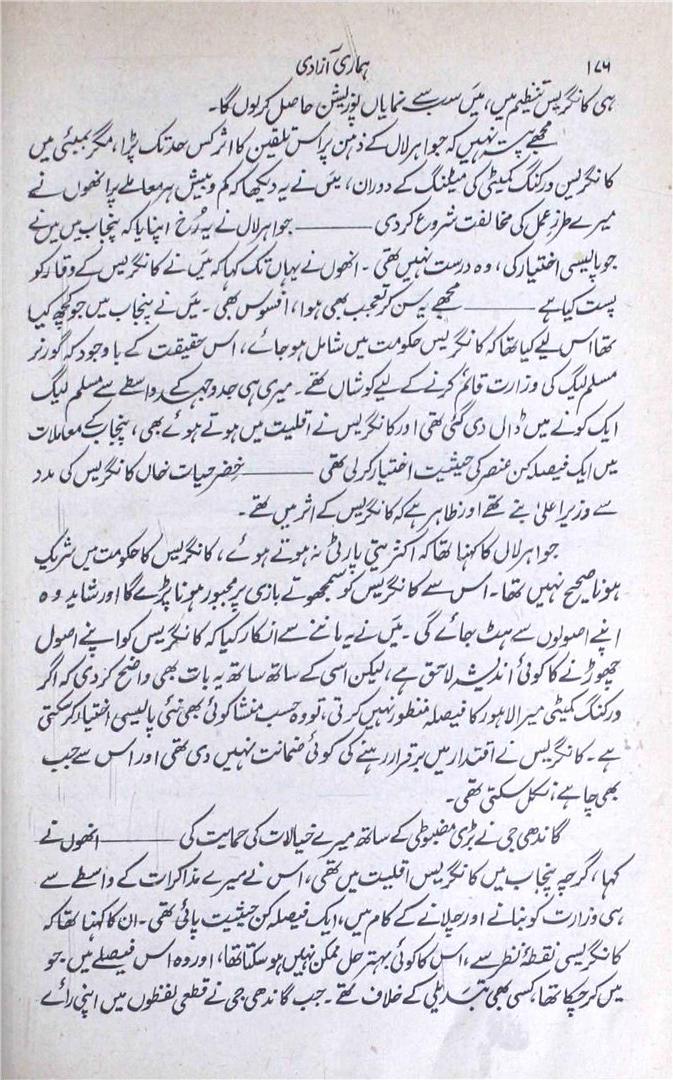 ۱۷۶
ہماری آزادی
ہی کانگریس تنظیم میں، میں سب سے نمایاں پوزیشن حاصل کر لوں گا۔
مجھے پتہ نہیں کہ جواہر لال کے ذہن پر اس تلقین کا اثر کس حد تک پڑا، مگر بمبئی میں
کانگریس ورکنگ کمیٹی کی میٹنگ کے دوران، میں نے یہ دیکھا کہ کم و بیش ہر معاملے پر انھوں نے
میرے طرزِ عمل کی مخالفت شروع کر دی ——— جواہر لال نے یہ رُخ اپنایا کہ پنجاب میں میں نے
جو پالیسی اختیار کی، وہ درست نہیں تھی۔ انھوں نے یہاں تک کہا کہ میں نے کانگریس کے وقار کو
پست کیا ہے ——— مجھے یہ سن کر تعجب بھی ہوا، افسوس بھی۔ میں نے پنجاب میں جو کچھ کیا
تھا اس لیے کیا تھا کہ کانگریس حکومت میں شامل ہو جائے، اس حقیقت کے باوجود کہ گورنر
مسلم لیگ کی وزارت قائم کرنے کے لیے کوشاں تھے۔ میری ہی جدوجہد کے واسطے سے مسلم لیگ
ایک کونے میں ڈال دی گئی تھی اور کانگریس نے اقلیت میں ہوتے ہوئے بھی، پنجاب کے معاملات
میں ایک فیصلہ کن عنصر کی حیثیت اختیار کر لی تھی ——— خضر حیات خاں کانگریس کی مدد
سے وزیر اعلیٰ بنے تھے اور ظاہر ہے کہ کانگریس کے اثر میں تھے۔
جواہر لال کا کہنا تھا کہ اکثریتی پارٹی نہ ہوتے ہوئے، کانگریس کا حکومت میں شریک
ہونا صحیح نہیں تھا۔ اس سے کانگریس کو سمجھوتے بازی پر مجبور ہونا پڑے گا اور شاید وہ
اپنے اصولوں سے ہٹ جائے گی۔ میں نے یہ ماننے سے انکار کیا کہ کانگریس کو اپنے اصول
چھوڑنے کا کوئی اندیشہ لاحق ہے، لیکن اسی کے ساتھ ساتھ یہ بات بھی واضح کر دی کہ اگر
ورکنگ کمیٹی میرا لاہور کا فیصلہ منظور نہیں کرتی، تو وہ حسب منشا کوئی بھی نئی پالیسی اختیار کر سکتی
ہے۔ کانگریس نے اقتدار میں برقرار رہنے کی کوئی ضمانت نہیں دی تھی اور اس سے جب
بھی چاہے، نکل سکتی تھی۔
گاندھی جی نے بڑی مضبوطی کے ساتھ میرے خیالات کی حمایت کی ——— انھوں نے
کہا، گرچہ پنجاب میں کانگریس اقلیت میں تھی، اس نے میرے مذاکرات کے واسطے سے
ہی وزارت کو بنانے اور چلانے کے کام میں، ایک فیصلہ کن حیثیت پائی تھی۔ ان کا کہنا تھا کہ
کانگریسی نقطۂ نظر سے، اس کا کوئی بہتر حل ممکن نہیں ہو سکتا تھا، اور وہ اس فیصلے میں جو
میں کر چکا تھا، کسی بھی تبدیلی کے خلاف تھے۔ جب گاندھی جی نے قطعی لفظوں میں اپنی رائے